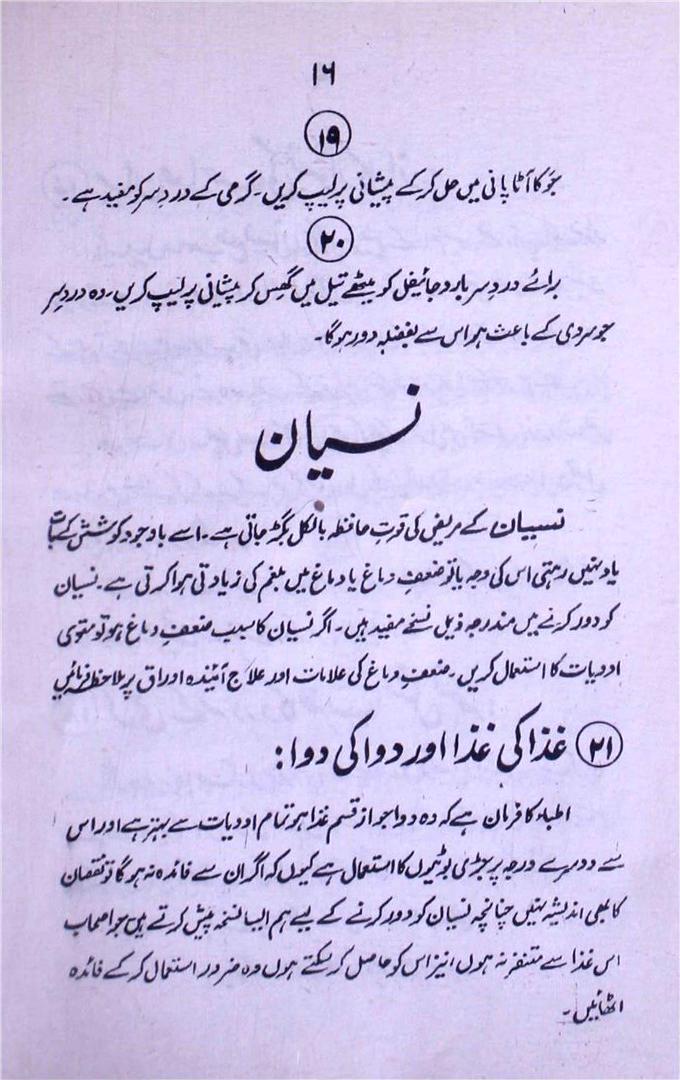 ۱۶
۱۹
جَو کا آٹا پانی میں حل کر کے پیشانی پر لیپ کریں۔ گرمی کے دردِ سر کو مفید ہے۔
۲۰
برائے دردِ سر بارد جائیفل کو میٹھے تیل میں گھِس کر پیشانی پر لیپ کریں۔ وہ دردِ سر
جو سردی کے باعث ہو اس سے بفضلہ دور ہو گا۔
نسیان
نسیان کے مریض کی قوتِ حافظہ بالکل بگڑ جاتی ہے۔ اسے باوجود کوشش کے بات
یاد نہیں رہتی اس کی وجہ یا تو ضعفِ دماغ یا دماغ میں بلغم کی زیادتی ہوا کرتی ہے۔ نسیان
کو دور کرنے میں مندرجہ ذیل نسخے مفید ہیں۔ اگر نسیان کا سبب ضعفِ دماغ ہو تو مقوی
ادویات کا استعمال کریں۔ ضعفِ دماغ کی علامات اور علاج آئندہ اوراق پر ملاحظہ فرمائیں
۲۱ غذا کی غذا اور دوا کی دوا:
اطباء کا فرمان ہے کہ وہ دوا جو از قسم غذا ہو تمام ادویات سے بہتر ہے اور اس
سے دوسرے درجہ پر جڑی بوٹیوں کا استعمال ہے کیوں کہ اگر ان سے فائدہ نہ ہو گا تو نقصان
کا بھی اندیشہ نہیں چنانچہ نسیان کو دور کرنے کے لیے ہم ایسا نسخہ پیش کرتے ہیں جو اصحاب
اس غذا سے متنفر نہ ہوں، نیز اس کو حاصل کر سکتے ہوں وہ ضرور استعمال کر کے فائدہ
اٹھائیں۔